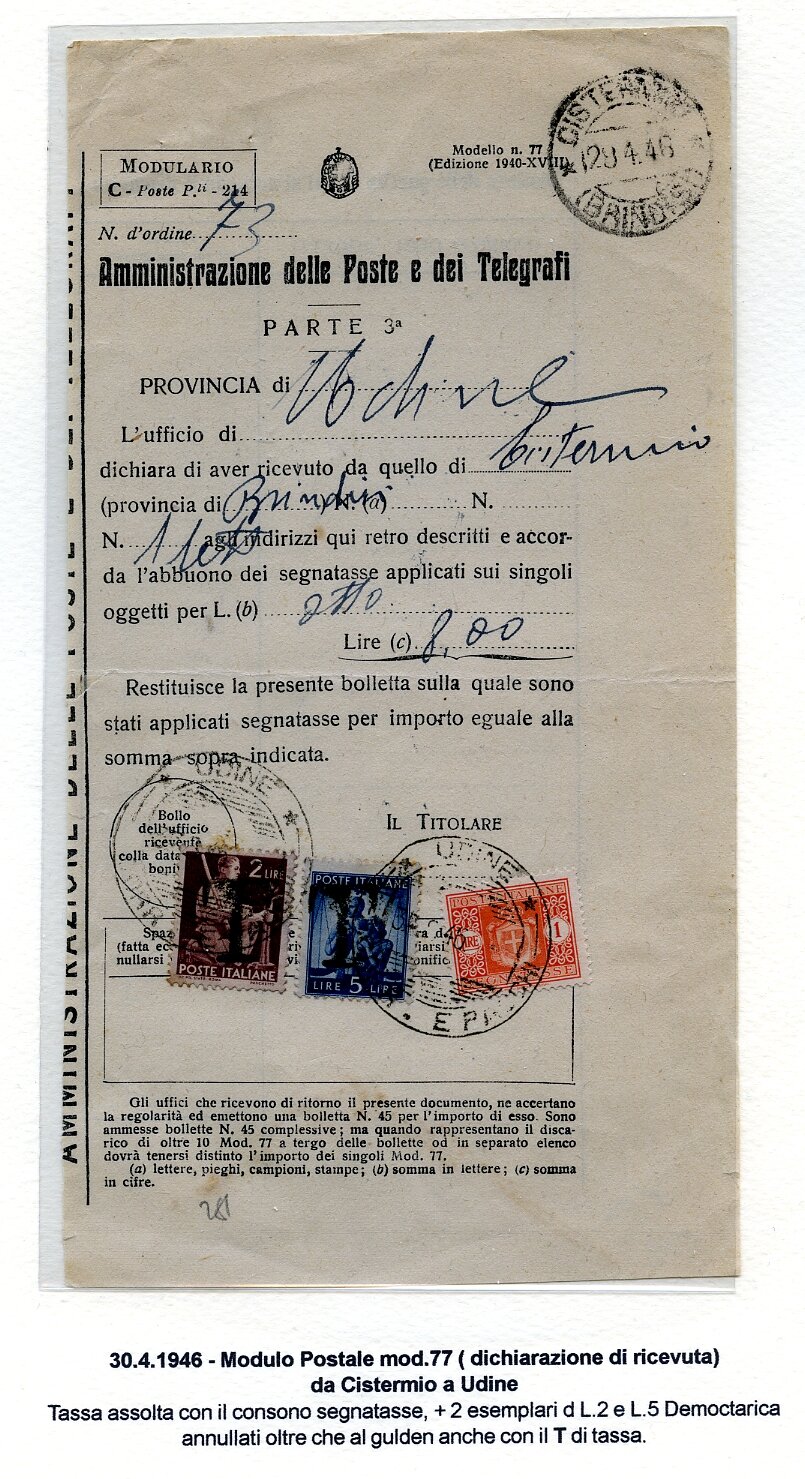 CISTERNINO
29.4.46
(BRINDISI)
Modello n. 77
(Edizione 1940-XVIII)
MODULARIO
C - Poste P.li - 214
N. d'ordine 73
Amministrazione delle Poste e dei Telegrafi
PARTE 3a
PROVINCIA di Udine
L'ufficio di
dichiara di aver ricevuto da quello di
(provincia di Brindisi) N. (a) N.
N. 1 agli indirizzi qui retro descritti e accor-
da l'abbuono dei segnatasse applicati sui singoli
oggetti per L. (b) otto
Lire (c) 8,00
Restituisce la presente bolletta sulla quale sono
stati applicati segnatasse per importo eguale alla
somma sopra indicata.
UDINE
Bollo
dell'ufficio
ricevente
colla data
IL TITOLARE
UDINE
2 LIRE
T
POSTE ITALIANE
POSTE ITALIANE
T
LIRE 5 LIRE
POSTE ITALIANE
1
(fatta
nullarsi
Gli uffici che ricevono di ritorno il presente documento, ne accertano
la regolarità ed emettono una bolletta N. 45 per l'importo di esso. Sono
ammesse bollette N. 45 complessive; ma quando rappresentano il disca-
rico di oltre 10 Mod. 77 a tergo delle bollette od in separato elenco
dovrà tenersi distinto l'importo dei singoli Mod. 77.
(a) lettere, pieghi, campioni, stampe; (b) somma in lettere; (c) somma
in cifre.
30.4.1946 - Modulo Postale mod.77 ( dichiarazione di ricevuta)
da Cistermio a Udine
Tassa assolta con il consono segnatasse, + 2 esemplari d L.2 e L.5 Democtarica
annullati oltre che al gulden anche con il T di tassa.